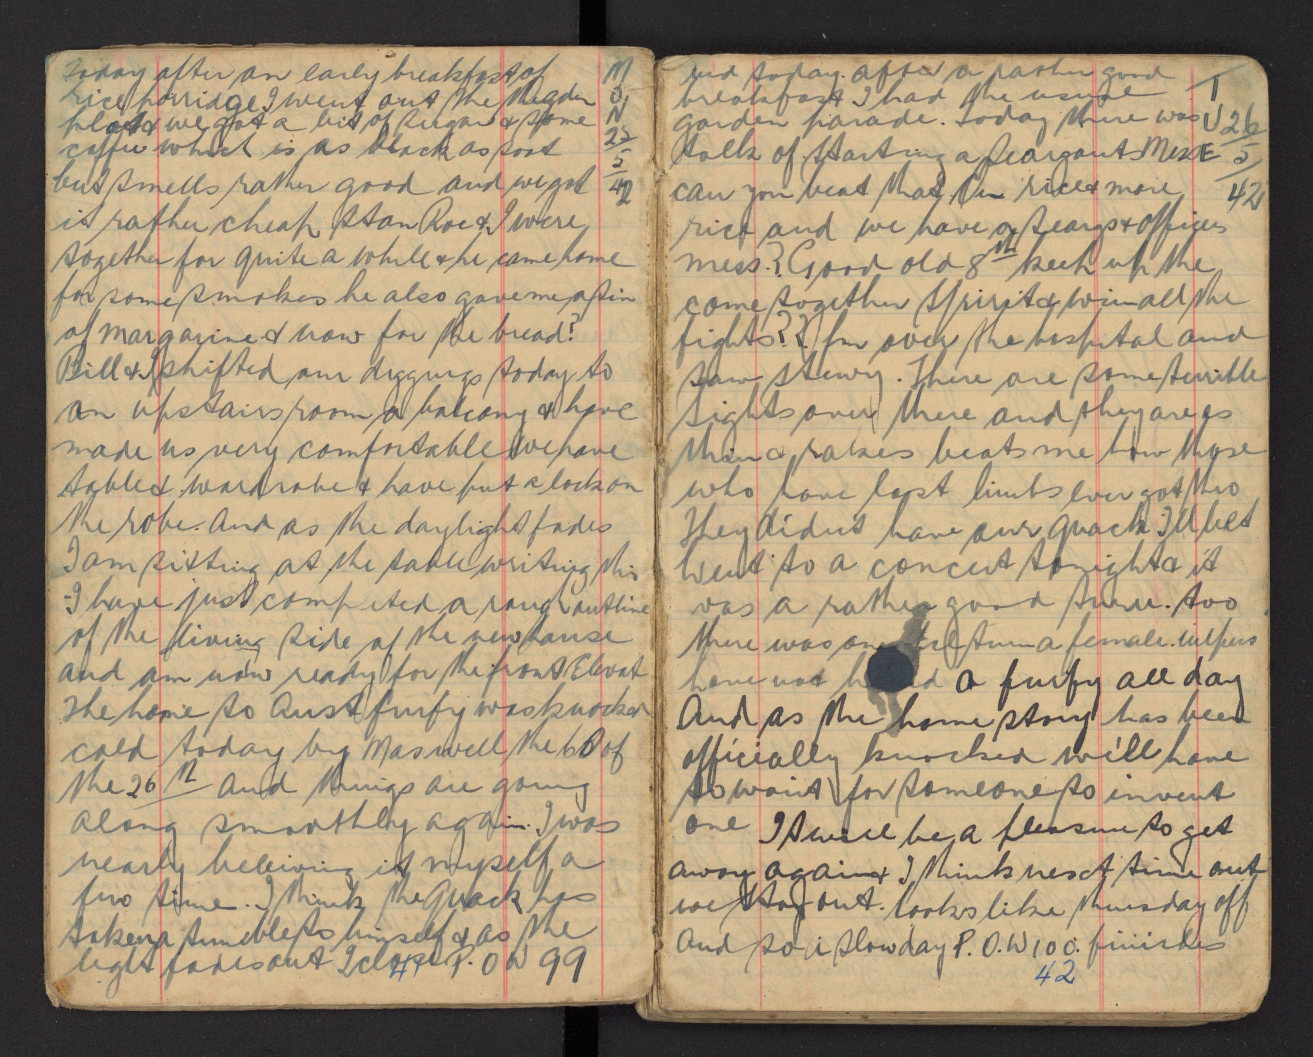 Today after an early breakfast of
rice porridge I went out the
& we got a bit of sugar & some
coffee which is as black as soot
but smells rather good and we got
it rather cheap Stan Roe & I were
together for quite a while & he came home
for some smokes he also gave me a tin
of margarine & now for the bread?
Bill & I shifted our diggings today to
an upstairs room a balcony & have
made us very comfortable We have
table & wardrobe & have put a lock on
the robe. And as the daylight fades
I am sitting at the table writing this
I have just completed a rough outline
of the living side of the new house
and am now ready for the front Elevat
The home to Aust furfy was knocked
cold today by Maxwell the bB of
the 26th And things are going
along smoothly again. I was
nearly believing it myself a
few time. I think the Quack has
taken a tumble to himself & as the
light fades out I close P.O.W 99
M
O
N
25
5
42
41
and today after a rather good
breakfast I had the usual
garden parade. Today there was
talk of starting a Seargants Mess
can you beat that I'm rice & more
rice and we have a Seargs & Officers
mess.? Good old 8th keep up the
come together spririt & win all the
fights?? I'm over the hospital and
saw Stewy. There are some terrible
sights over there and they are as
thin as rakes beats me how those
who have lost limbs ever got thro
They didnt have our Quack I'll bet
Went to a concert tonight & it
was a rather good show. too
there was turn a female.
have not a furfy all day
And as the home story has been
officially knocked we'll have
to wait for someone to invent
one It will be a pleasure to get
away again & I think next time out
we stay out. looks like thursday off
And so a slow day P.O.W 100. finishes
T
U
E
26
5
42
42